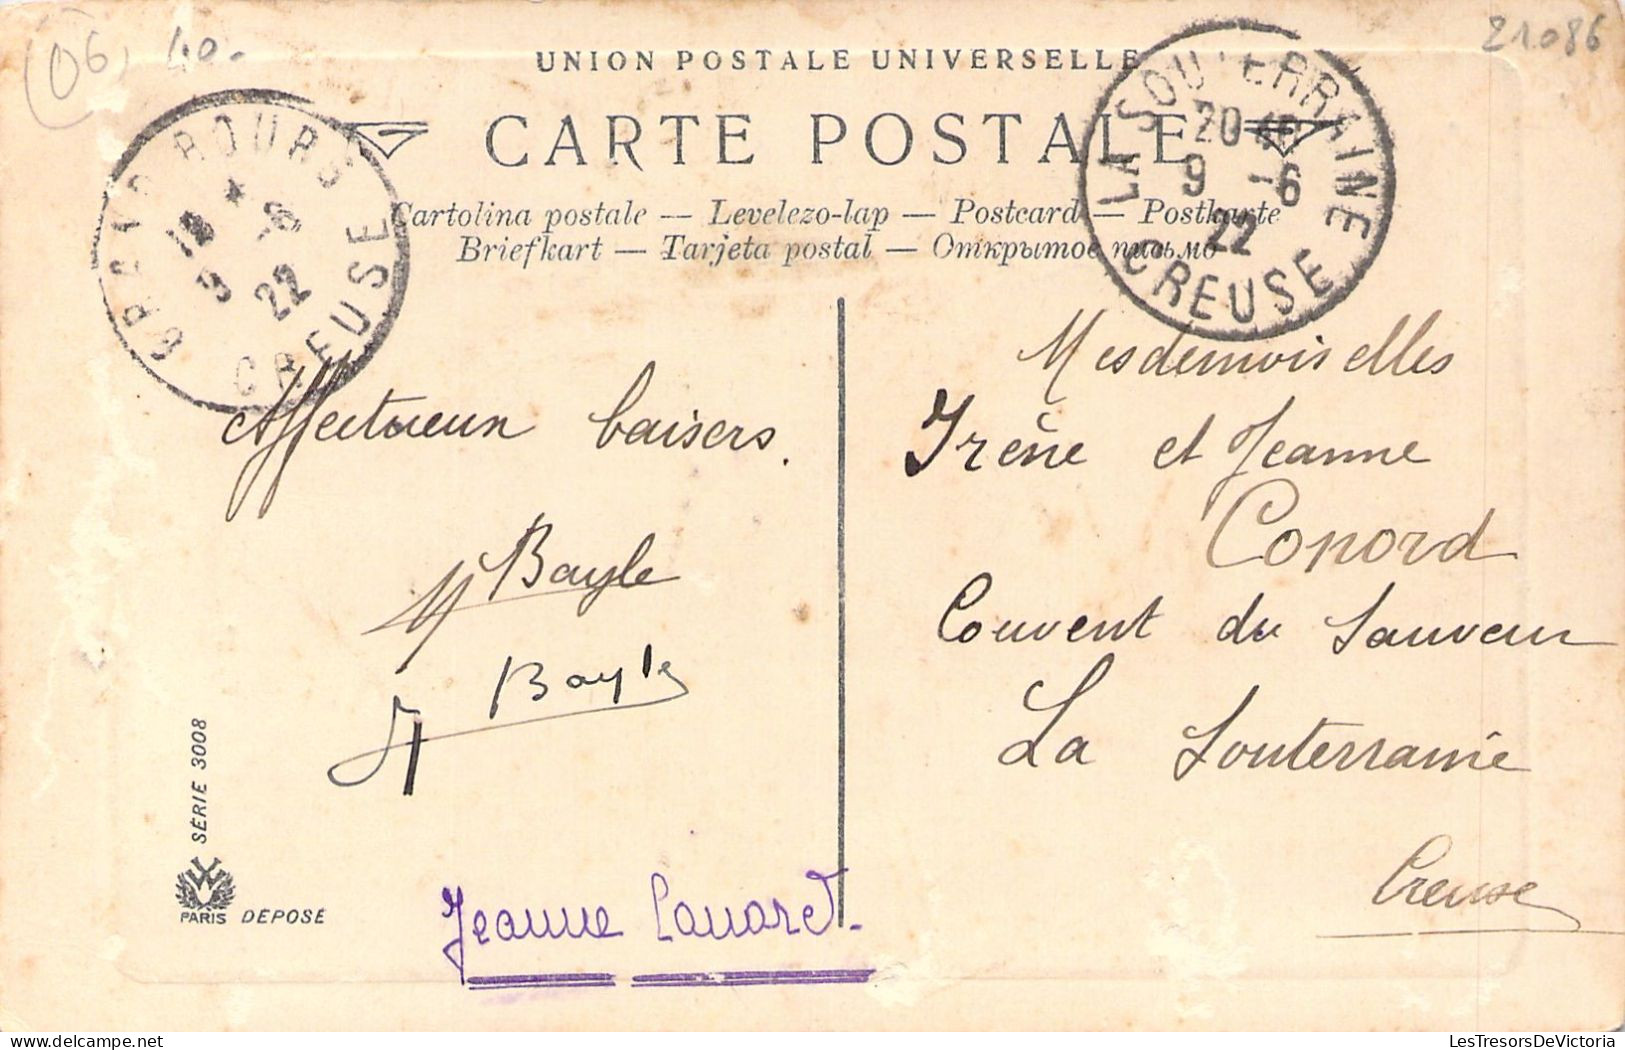 (06) 40.
21086
UNION POSTALE UNIVERSELLE
CARTE POSTALE
Cartolina postale — Levelezo-lap — Postcard — Postkarte
Briefkart — Tarjeta postal — Открытое письмо
GRAND BOURG
18
9 -6
22
CREUSE
LA SOUTERRAINE
20
9 -6
22
CREUSE
Affectueux baisers.
M Bayle
J Bayle
Jeanne
Mesdemoiselles
Irène et Jeanne
Conord
Couvent du Sauveur
La Souterraine
Creuse
SÉRIE 3008
PARIS DÉPOSÉ
LesTresorsDeVictoria